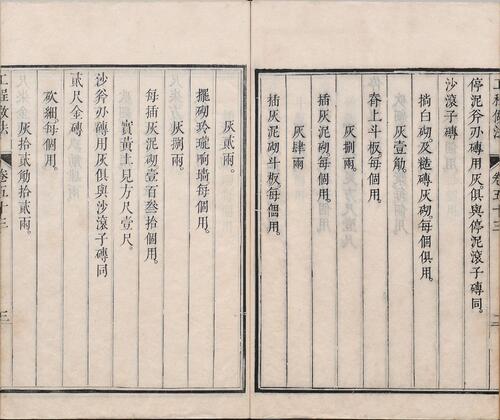 停泥斧刅磚用灰俱與停泥滾子磚同。
沙滾子磚
揹白砌及糙磚灰砌每個俱用。
灰壹觔。
脊上斗板每個用。
灰捌兩。
插灰泥砌斗板每個用。
灰肆兩。
插灰泥砌每個用。
灰貳兩。
擺砌玲瓏喻墙每個用。
灰捌兩。
每插灰泥砌壹百叁拾個用。
實黃土見方尺壹尺。
沙斧刅磚用灰俱與沙滾子磚同
貳尺金磚
砍細。每個用。
灰拾貳觔拾貳兩。
卷五十三
三